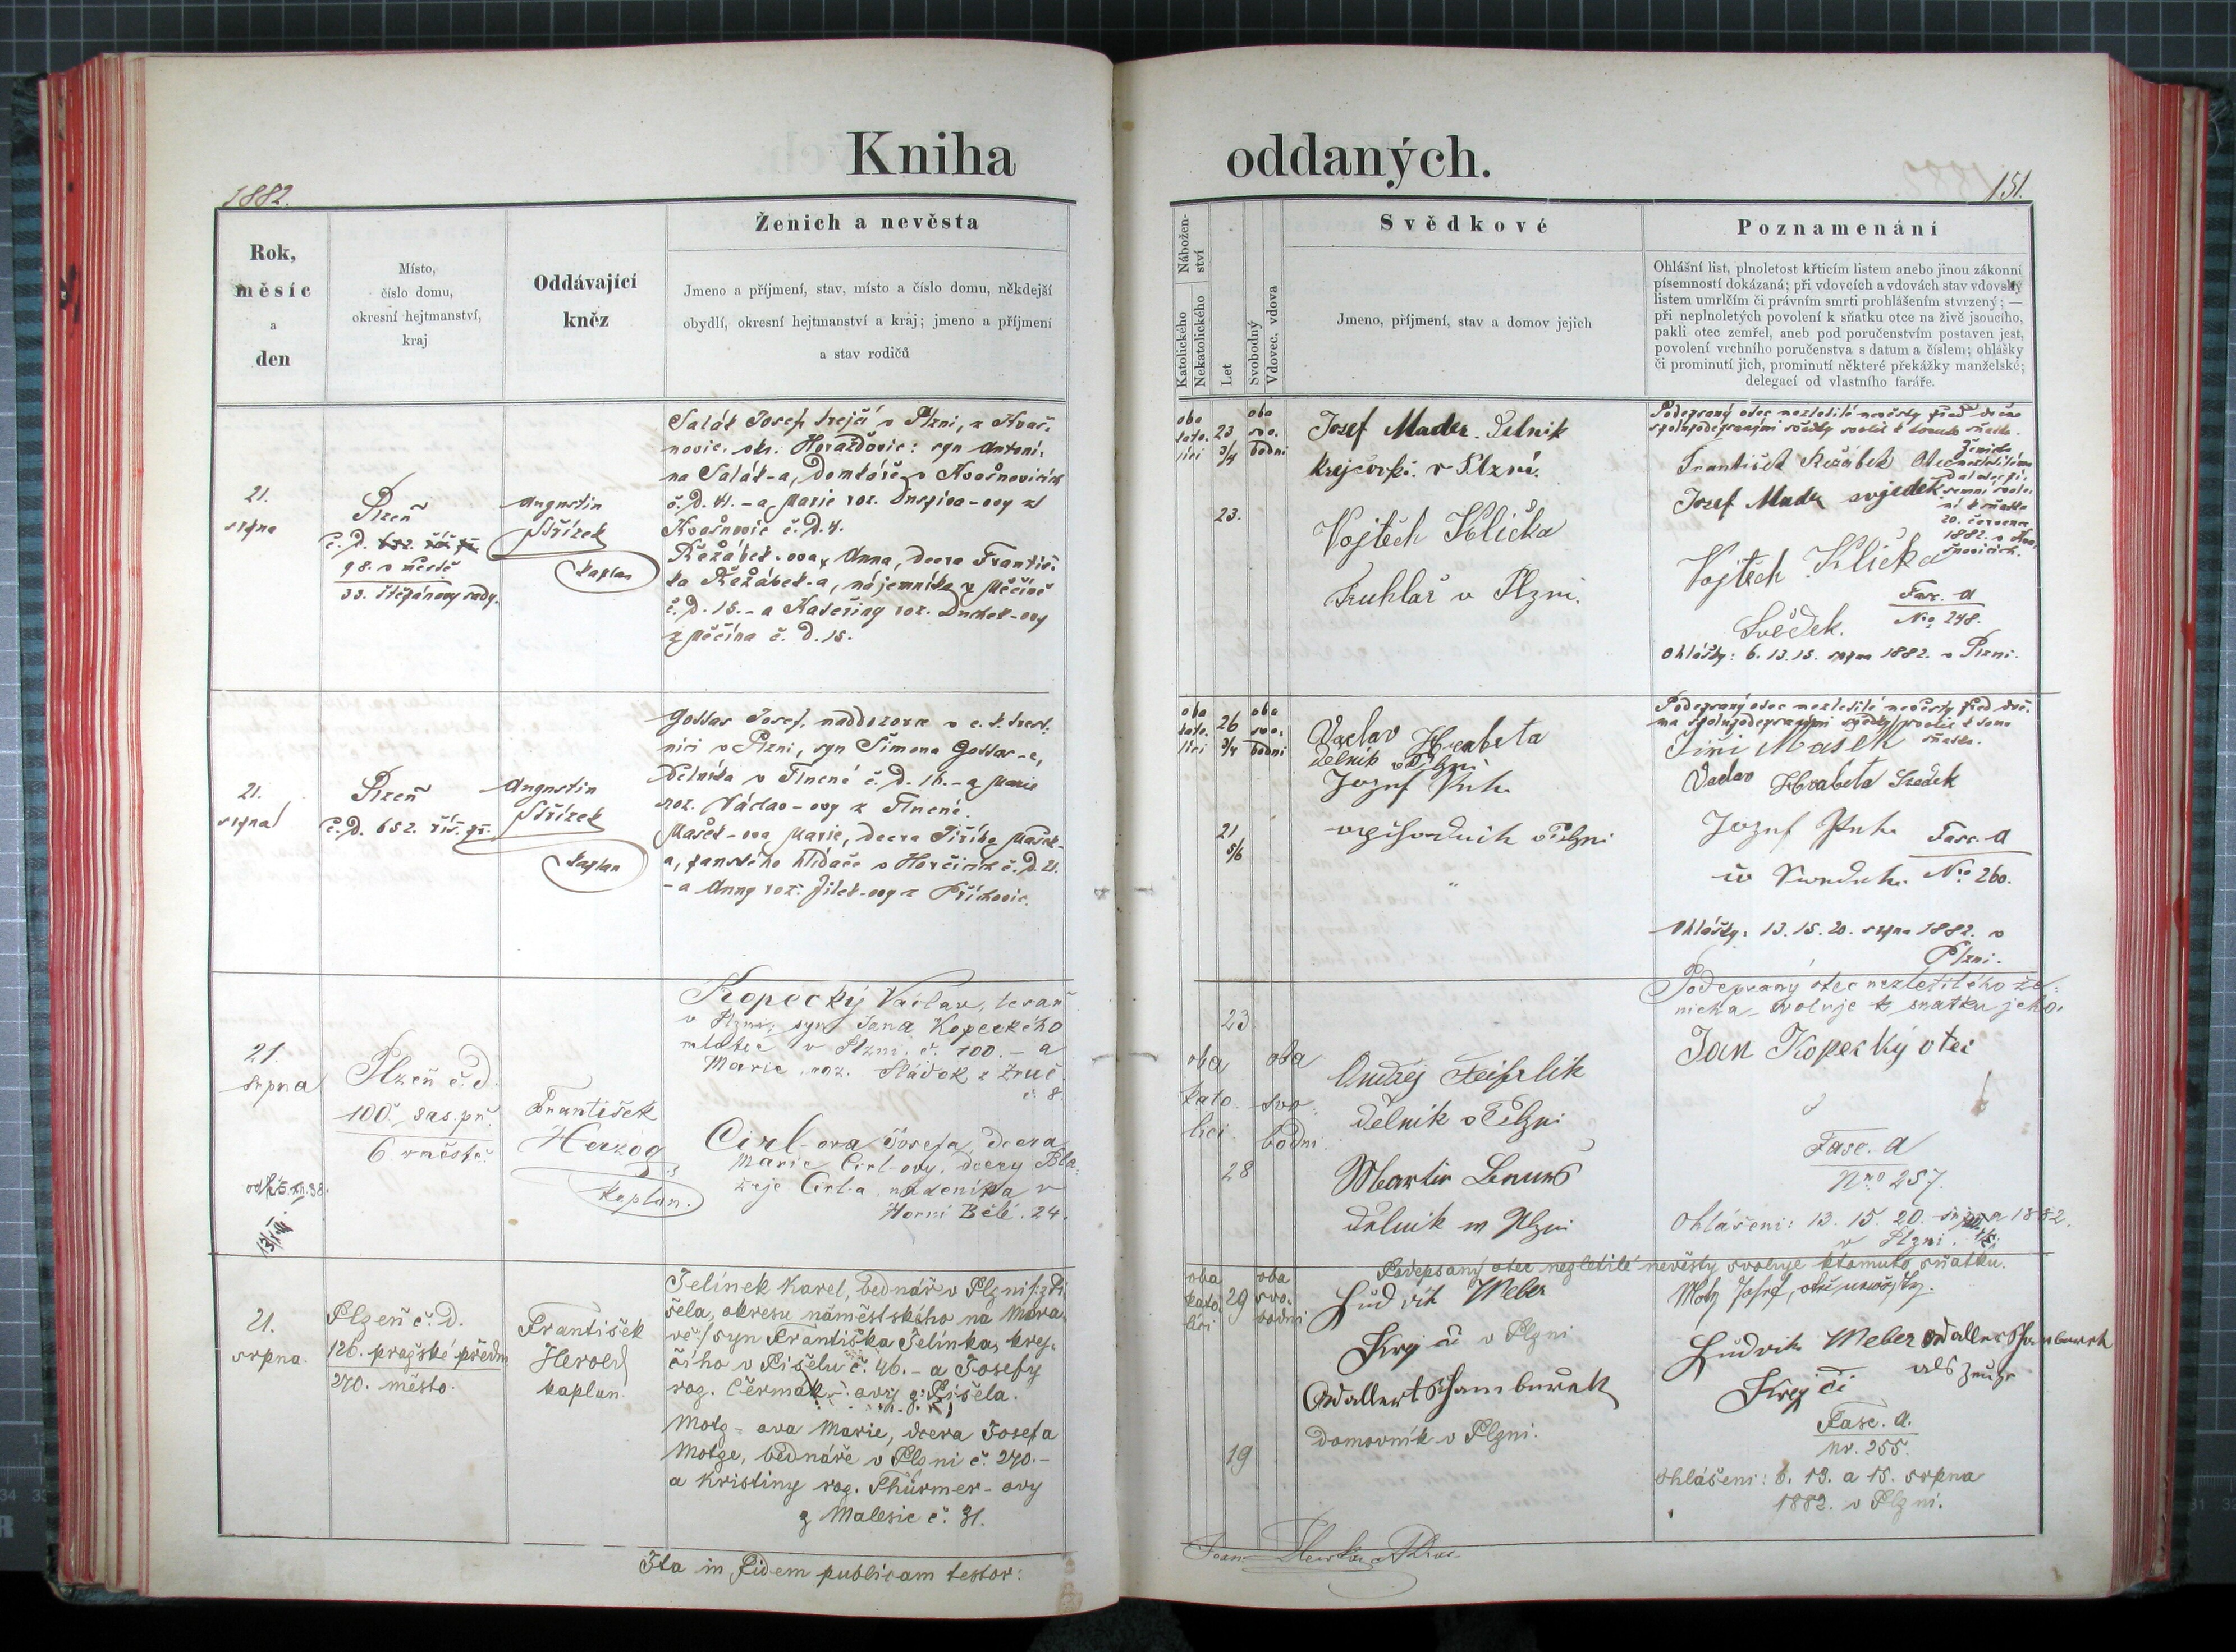 Kniha oddaných.
1882.
151.
Rok,
měsíc
a
den
Místo,
číslo domu,
okresní hejtmanství,
kraj
Oddávající
kněz
Ženich a nevěsta
Jmeno a příjmení, stav, místo a číslo domu, někdejší
obydlí, okresní hejtmanství a kraj; jmeno a příjmení
a stav rodičů
Nábožen-
ství
Katolického
Nekatolického
Let
Svobodný
Vdovec, vdova
Svědkové
Jmeno, příjmení, stav a domov jejich
Poznamenání
Ohlášní list, plnoletost křticím listem anebo jinou zákonní
písemností dokázaná; při vdovcích a vdovách stav vdovský
listem umrlčím či právním smrti prohlášením stvrzený; —
při neplnoletých povolení k sňatku otce na živě jsoucího,
pakli otec zemřel, aneb pod poručenstvím postaven jest,
povolení vrchního poručenstva s datum a číslem; ohlášky
či prominutí jich, prominutí některé překážky manželské;
delegací od vlastního faráře.
21.
srpna
Plzeň
č. D.
98. v městě
33. Štěpánovy sady.
Augustin
Střízek
kaplan
Salát Josef, krejčí v Plzni, z Kvaš-
novic, okr. Horažďovic: syn Antoní-
na Salát-a, domkáře v Kvašnovicích
č. D. 41. - a Marie roz.
Kvašnovic č. D. 4.
Řežábek-ova, Anna, dcera Františ-
ka Řežábek-a, nájemníka z Měčína
č. D. 15. - a Kateřiny roz. Duchek-ovy
z Měčína č. D. 15.
oba
kato-
líci
23
3/4
oba
svo-
bodni
23.
Josef Mader. Dělnik
Krejčovski. v Plzni.
Vojtěch Klička
Truhlář v Plzni.
Podepsaný otec nezletilé nevěsty před dvěma
spolupodepsanými svědky svolil k tomuto sňatku.
František Řežábek Otec
Josef Mader svjedek
20. července
1882. v
Vojtěch Klička
Svědek.
Fasc. A
Nro 248.
Ohlášky: 6. 13. 15. srpna 1882. v Plzni.
21.
srpna
Plzeň
č. D. 652. říš. př.
Augustin
Střízek
kaplan
Gottas Josef, naddozorce v c. k. trest-
nici v Plzni, syn Šimona Gottas-e,
dělníka v Tlnené č. D. 16. - a Marie
roz. Václav-ovy z Tlnené.
Mašek-ova Marie, dcera Jiřího Mašek-
a, panského hlídače v Horčicích č. D. 21.
- a Anny roz. Jílek-ovy z Příchovic.
oba
kato-
líci
26
3/4
oba
svo-
bodni
21
5/6
Vaclav Hrabeta
dělnik v Plzni
v Plzni
Podepsaný otec nezletilé nevěsty před dvě-
ma spolupodepsanými svědky svolil k tomu
sňatku.
Jiři Mašek
Vaclav Hrabeta Svedek
Fasc. A
Nro 260.
Ohlášky: 13. 15. 20. srpna 1882. v
Plzni.
21.
srpna
Plzeň č. d.
100. sas. př.
6 v městě.
František
Herzog
kaplan.
Kopecký Vaclav, tesař
v Plzni, syn Jana Kopeckého
mlatce v Plzni. č. 100. - a
Marie, roz. Sládok z Zruč.
č. 8.
Cirl-ova Josefa, dcera
Marie Cirl-ovy, dcery Bla-
žeje Cirl-a, nádeníka v
Horní Bělé. 24.
23
oba
kato
líci
oba
svo-
bodni.
28
Ondřej Feifrlik
dělnik v Plzni
Martin
Dělnik w Plzni
Podepsaný otec nezletilého že-
nicha svoluje k sňatku jeho.
Jan Kopecký otec
Fasc. A
Nro 257.
Ohlášeni: 13. 15. 20. srpna 1882.
v Plzni.
21.
srpna.
Plzeň č. D.
126. pražské předm
270. město.
František
Herold
kaplan.
Jelínek Karel, bednář v Plzni /: z Pi-
šela, okresu náměstského na Mora-
vě:/ syn Františka Jelínka, krej-
čího v Pišelu č. 46. - a Josefy
roz. Čermák-ovy z Pišela.
Motz-ova Marie, dcera Josefa
Motze, bednáře v Plzni č. 270. -
a Kristiny roz. Thürmer-ovy
z Malesic č. 31.
oba
kato-
líci
29
oba
svo-
bodni
19
Ludvik Weber
Krejči v Plzni
Wallert Schamburek
domovník v Plzni.
Podepsaný otec nezletilé nevěsty svoluje ktomuto sňatku.
Motz Josef,
Ludvik Weber Wallert Schamburek
Krejči
als Zeuge
Fasc. A.
Nr. 255.
Ohlášeni: 6. 13. a 15. srpna
1882. v Plzni.
Ita in fidem publicam testor: